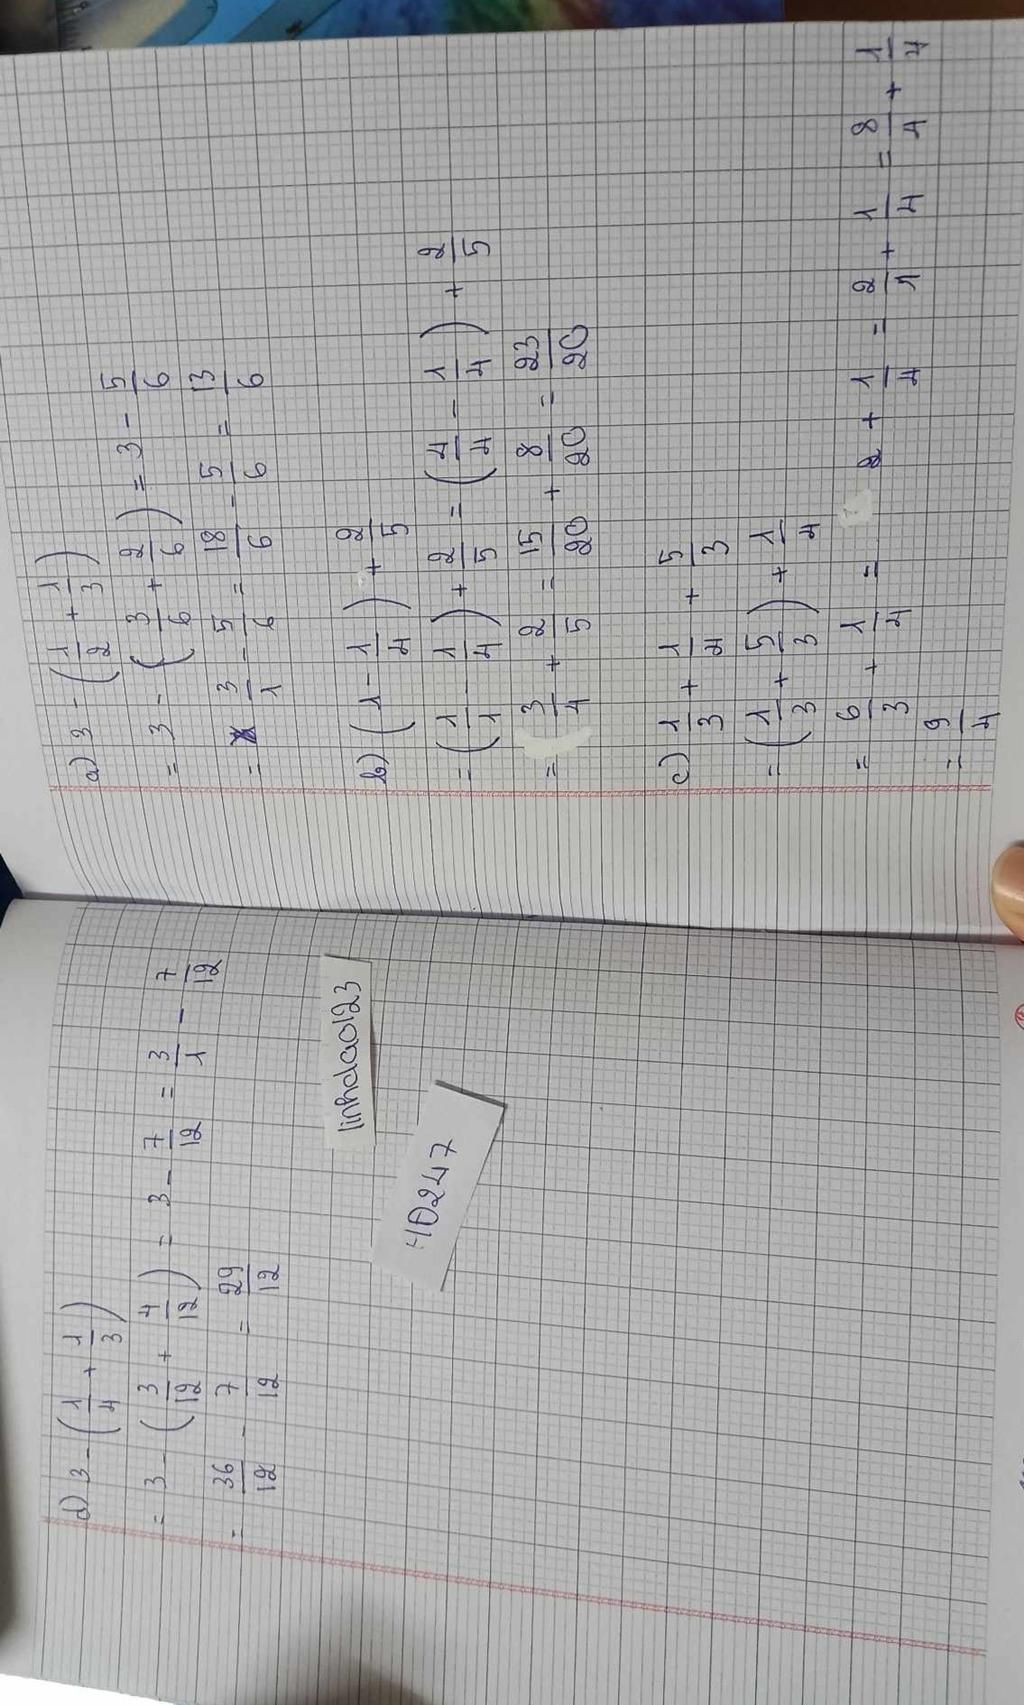 a) 3 - (1/2 + 1/3)
= 3 - (3/6 + 2/6) = 3 - 5/6
= 3/1 - 5/6 = 18/6 - 5/6 = 13/6
b) (1 - 1/4) + 2/5
= (1/1 - 1/4) + 2/5 = (4/4 - 1/4) + 2/5
= 3/4 + 2/5 = 15/20 + 8/20 = 23/20
c) 1/3 + 1/4 + 5/3
= (1/3 + 5/3) + 1/4
= 6/3 + 1/4 = 2 + 1/4 = 2/1 + 1/4 = 8/4 + 1/4
= 9/4
d) 3 - (1/4 + 1/3)
= 3 - (3/12 + 4/12) = 3 - 7/12 = 3/1 - 7/12
= 36/12 - 7/12 = 29/12
linhdao123
40247